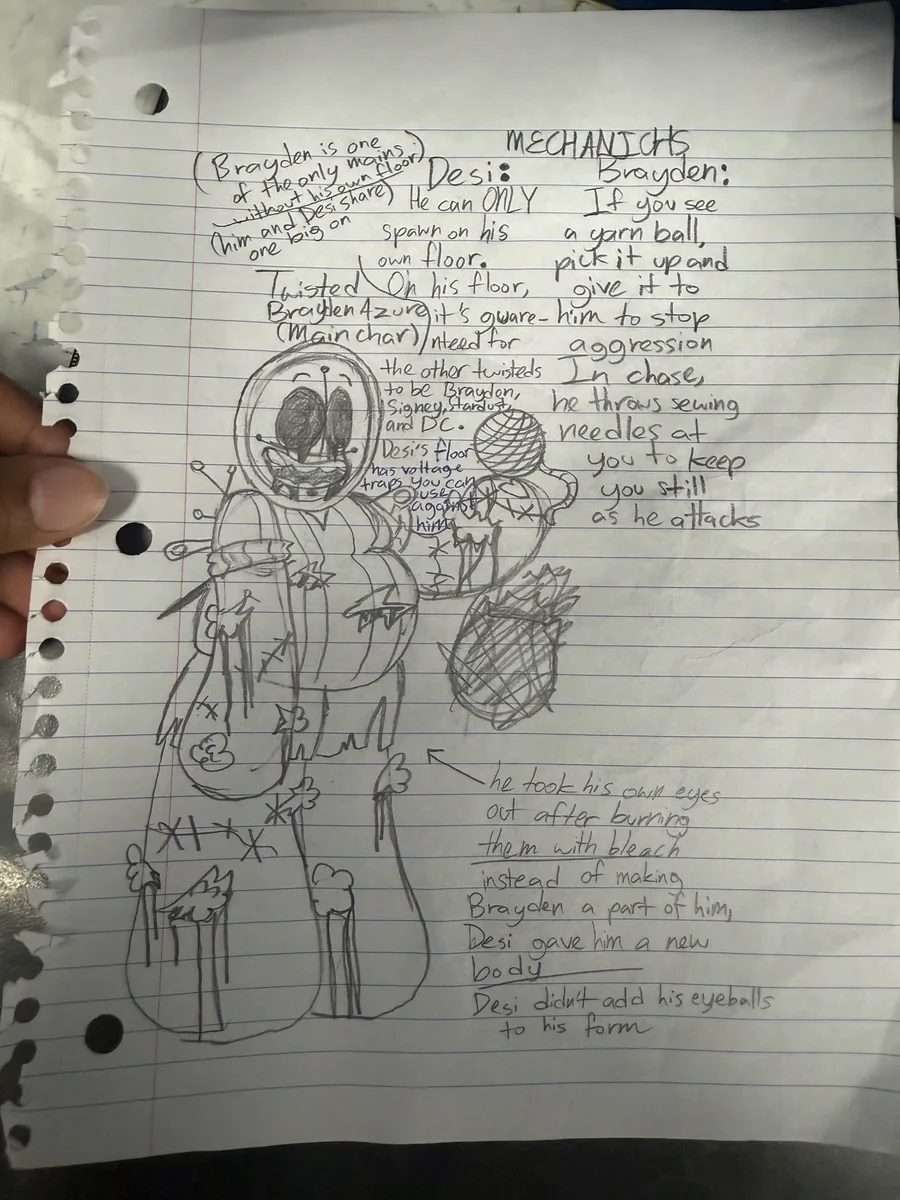 (Brayden is one
of the only mains
without his own floor)
(him and Desi share)
one big on
Twisted
Brayden Azure
(Main char)
MECHANICHS
Desi:
He can ONLY
spawn on his
own floor.
On his floor,
it's gware-
nteed for
the other twisteds
to be Braydon,
Signey, Stardust,
and DC.
Desi's floor
has voltage
traps you can
use
against
him
Brayden:
If you see
a yarn ball,
pick it up and
give it to
him to stop
aggression
In chase,
he throws sewing
needles at
you to keep
you still
as he attacks
he took his own eyes
out after burning
them with bleach
instead of making
Brayden a part of him,
Desi gave him a new
body
Desi didn't add his eyeballs
to his form